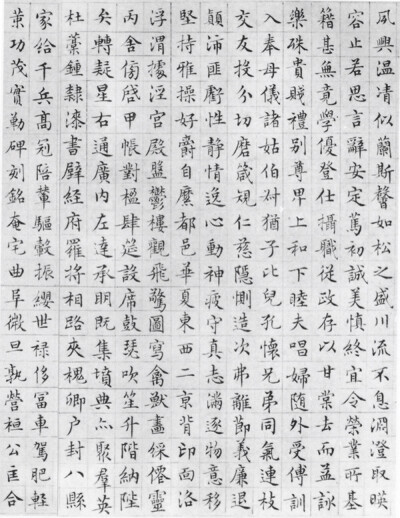 夙興温清似蘭斯馨如松之盛川流不息淵澄取暎
容止若思言辭安定篤初誠美慎終宜令榮業所基
籍甚無竟學優登仕攝職從政存以甘棠去而益詠
樂殊貴賤禮別尊卑上和下睦夫唱婦随外受傅訓
入奉母儀諸姑伯叔猶子比兒孔懷兄弟同氣連枝
交友投分切磨箴規仁慈隱惻造次弗離節義廉退
顛沛匪虧性靜情逸心動神疲守真志滿逐物意移
堅持雅操好爵自縻都邑華夏東西二京背邙面洛
浮渭據涇宮殿盤鬱樓觀飛驚圖寫禽獸畫綵僊靈
丙舍傍啓甲帳對楹肆筵設席鼓瑟吹笙升階納陛
弁轉疑星右通廣内左達承明既集墳典亦聚羣英
杜藁鍾隸漆書壁經府羅將相路夾槐卿戶封八縣
家給千兵高冠陪輦驅轂振纓世禄侈富車駕肥軽
策功茂實勒碑刻銘奄宅曲阜微旦孰營桓公匡合